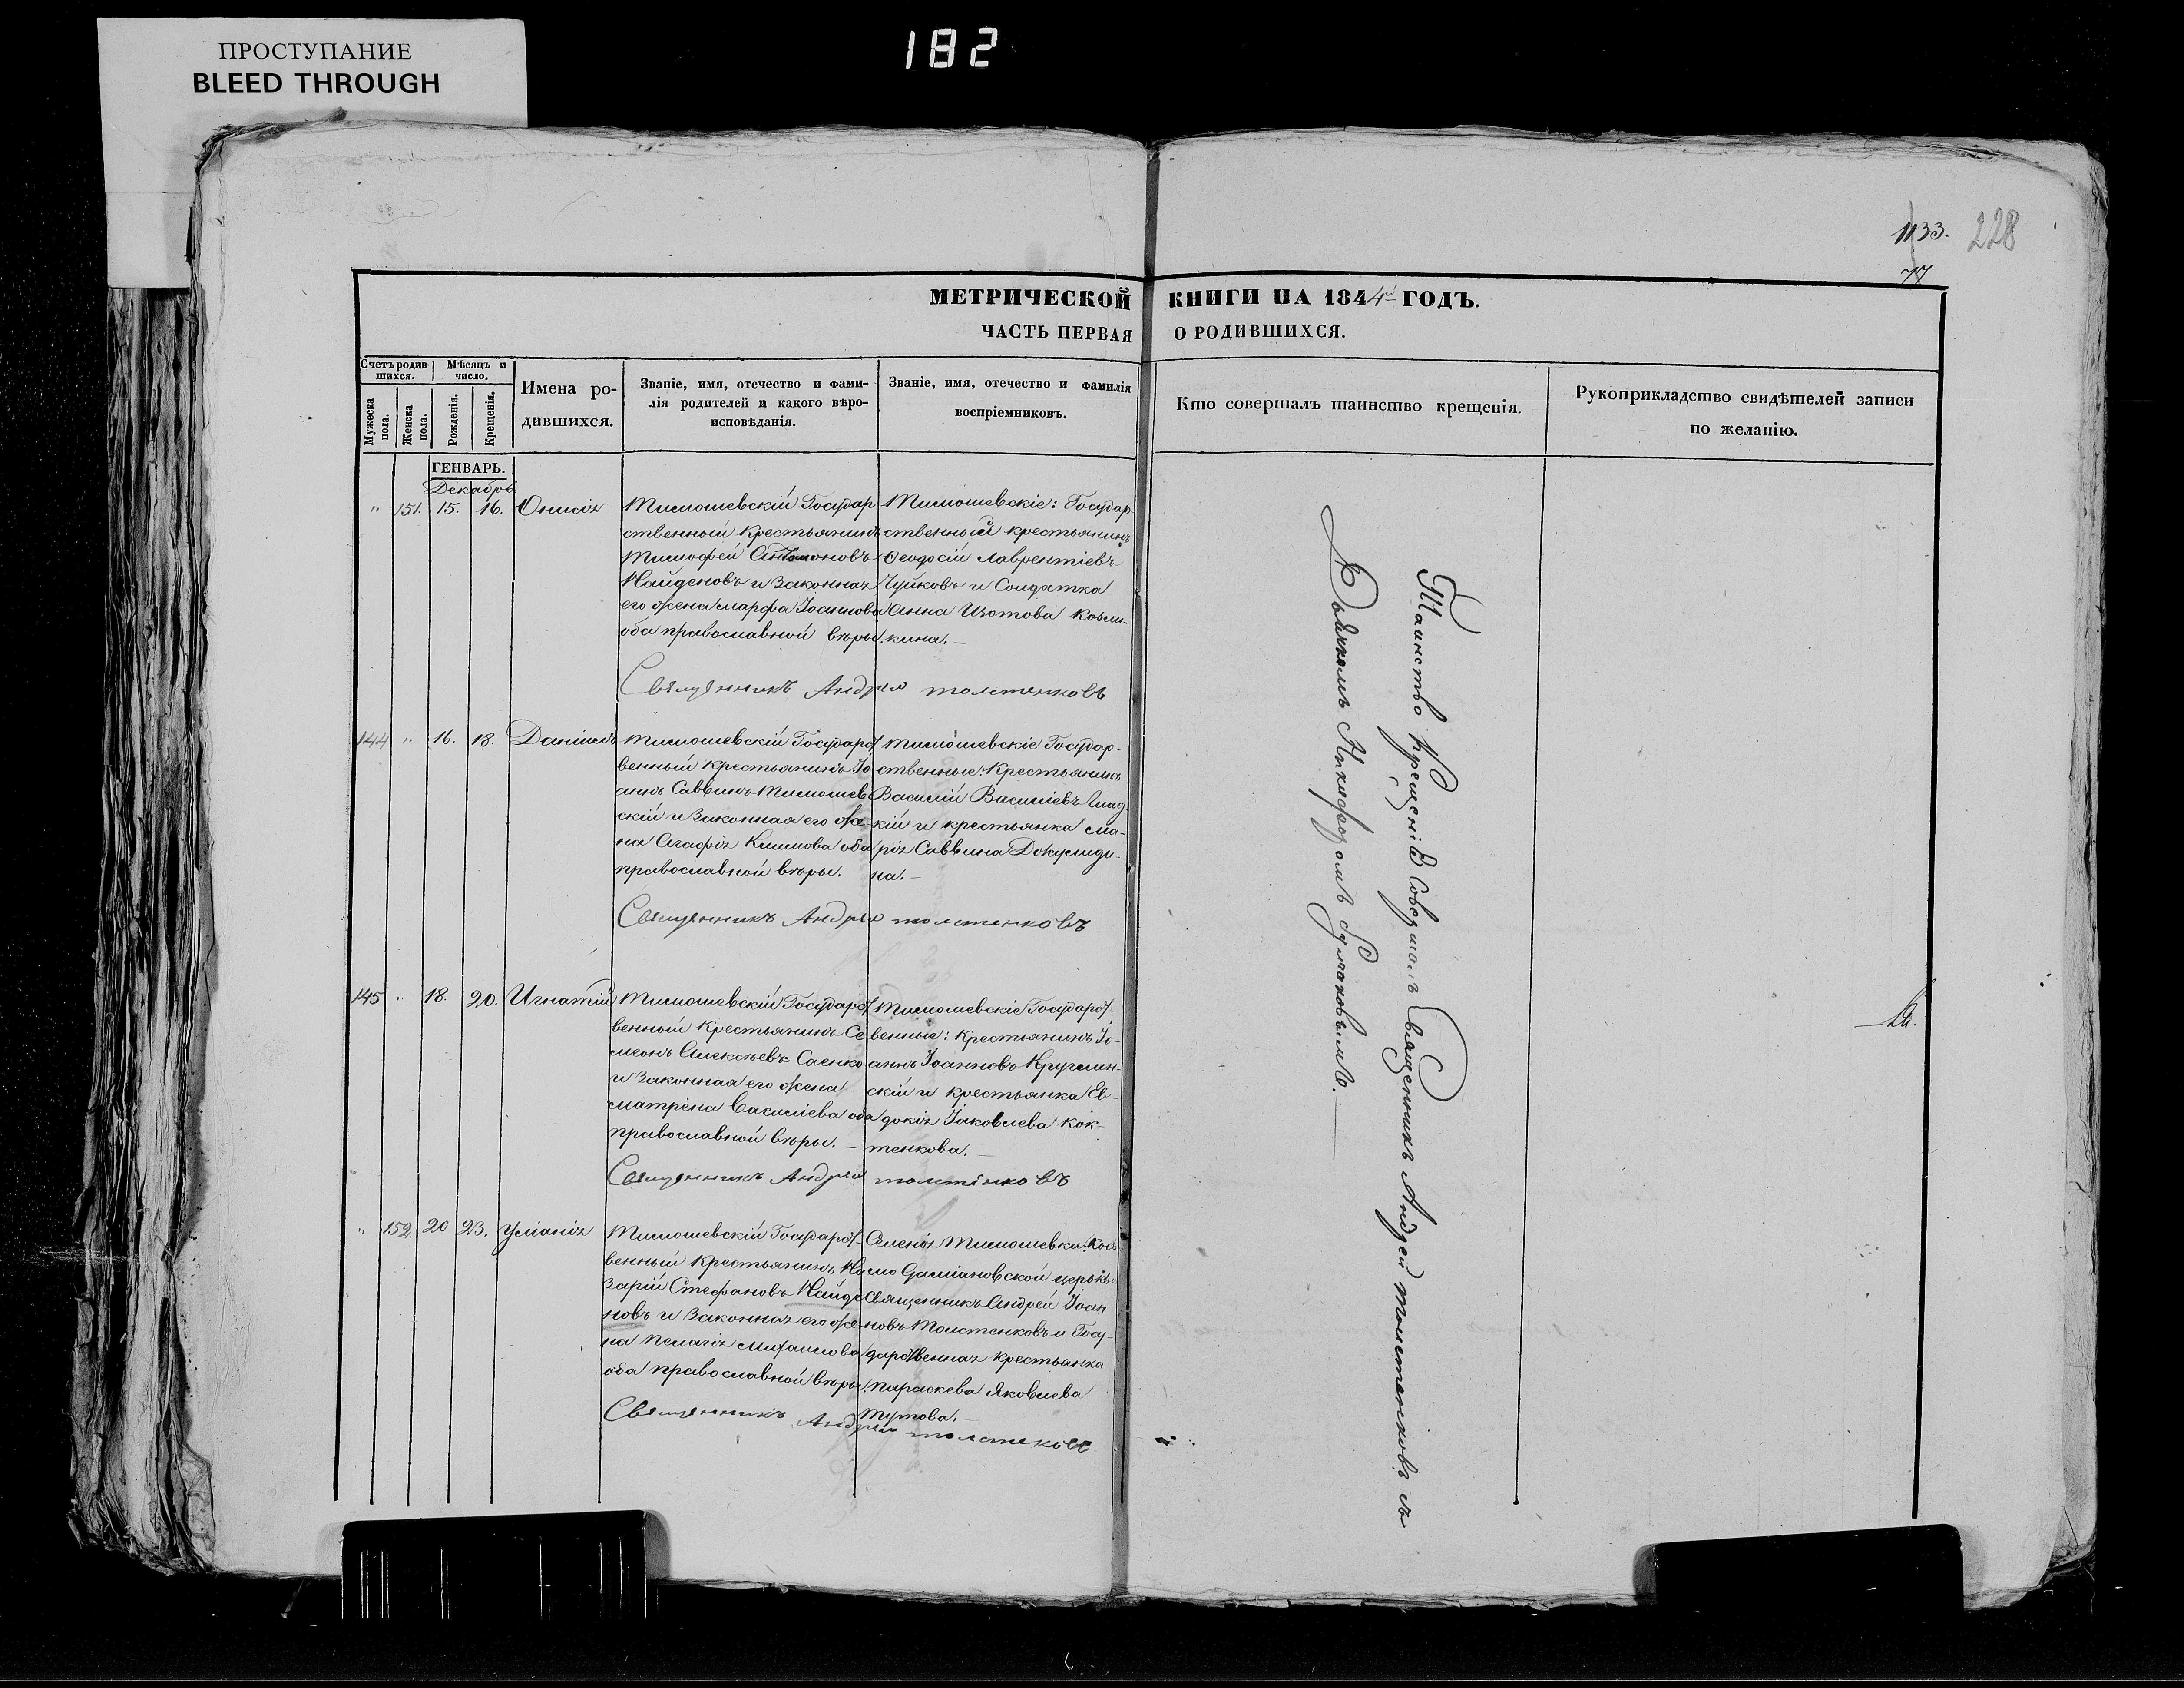 ПРОСТУПАНИЕ
BLEED THROUGH
182
1133. 228
77
МЕТРИЧЕСКОЙ КНИГИ НА 1844й ГОДЪ.
ЧАСТЬ ПЕРВАЯ О РОДИВШИХСЯ.
Счетъ родившихся.
Мужеска пола.
Женска пола.
Мѣсяцъ и число.
Рожденія.
Крещенія.
Имена родившихся.
Званіе, имя, отечество и фамилія родителей и какого вѣроисповѣданія.
Званіе, имя, отечество и фамилія воспріемниковъ.
Кто совершалъ таинство крещенія.
Рукоприкладство свидѣтелей записи по желанію.
ГЕНВАРЬ.
Декабрь
" 151. 15. 16. Онисія
Тимошевскій Государ
ственный крестьянинъ
Тимофей Антоновъ
Найденовъ и Законная
его жена Марфа Іоаннова
оба православной вѣры.
Тимошевскіе: Государ
ственный крестьянинъ
Феодосій Лаврентіевъ
Чуйковъ и Солдатка
Анна Изотова Козми-
кина.—
Священникъ Андрей Толстенковъ
144 " 16. 18. Даніилъ
Тимошевскій Государст
венный крестьянинъ Іо
аннъ Саввинъ Тимошев
скій и Законная его же
на Агафія Климова оба
православной вѣры.
Тимошевскіе Государ-
ственные: Крестьянинъ
Василій Василіевъ Глад
кій и крестьянка Ма-
рія Саввина Докучиди-
на.—
Священникъ Андрей Толстенковъ
145 " 18. 20. Игнатій
Тимошевскій Государст
венный Крестьянинъ Се
меонъ Алексѣевъ Саенко
и Законная его жена
Матрена Василіева оба
православной вѣры.—
Тимошевскіе Государст-
венные: Крестьянинъ Іо-
аннъ Іоанновъ Круглин-
скій и крестьянка Ев-
докія Іаковлева Кок-
тенкова.—
Священникъ Андрей Толстенковъ
" 152. 20 23. Уліанія
Тимошевскій Государст-
венный Крестьянинъ На
зарій Стефановъ Найде
новъ и Законная его же-
на Пелагія Михаилова
оба православной вѣры.
Селенія Тимошевки: Косъ
мо Даміановской церкви
Священникъ Андрей Іоан
новъ Толстенковъ и Госу-
дарственная крестьянка
Параскева Яковлева
Тутова.—
Священникъ Андрей Толстековъ
Таинство крещенія Совершалъ Священникъ Андрей Толстенковъ съ
Дьячкомъ Никифоромъ